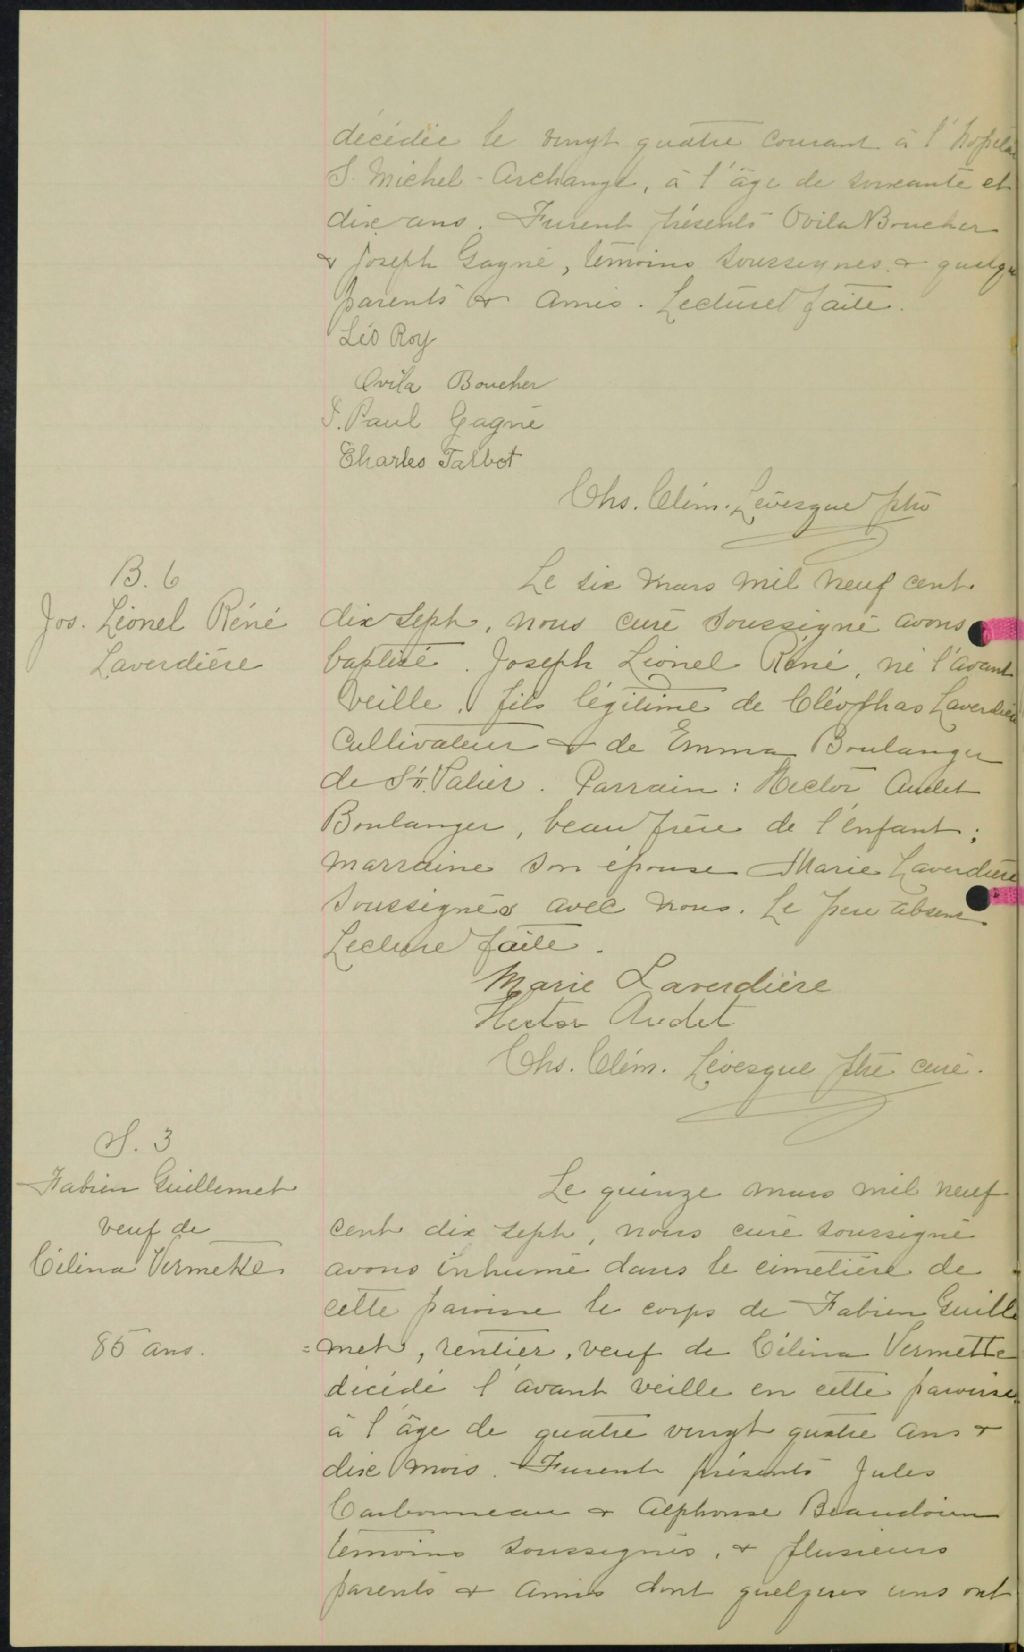 décédée le vingt quatre courant à l'hopital
S. Michel-Archange, à l'âge de soixante et
dix ans. Furent présents Ovila Boucher
& Joseph Gagné, témoins soussignés & quelqu
parents & amis. Lecture faite.
Léo Roy
Ovila Boucher
J. Paul Gagné
Charles Talbot
Chs. Clém. Lévesque ptre
B. 6
Jos. Lionel Réné
Laverdière
Le six mars mil neuf cent
dix sept, nous curé soussigné avons
baptisé Joseph Lionel Réné, né l'avant
veille, fils légitime de Cléophas Laverdière
cultivateur & de Emma Boulanger
de St. Valier. Parrain : Hector Audet
Boulanger, beau frère de l'enfant ;
marraine son épouse Marie Laverdière
soussignés avec nous. Le père absent
Lecture faite.
Marie Laverdière
Hector Audet
Chs. Clém. Lévesque ptre curé.
S. 3
Fabien Guillemet
veuf de
Célina Vermette
85 ans.
Le quinze mars mil neuf
cent dix sept, nous curé soussigné
avons inhumé dans le cimetière de
cette paroisse le corps de Fabien Guille
=met, rentier, veuf de Célina Vermette
décédé l'avant veille en cette paroisse
à l'âge de quatre vingt quatre ans &
dix mois. Furent présents Jules
Carbonneau & Alphonse Beaudoin
témoins soussignés, & plusieurs
parents & amis dont quelques uns ont